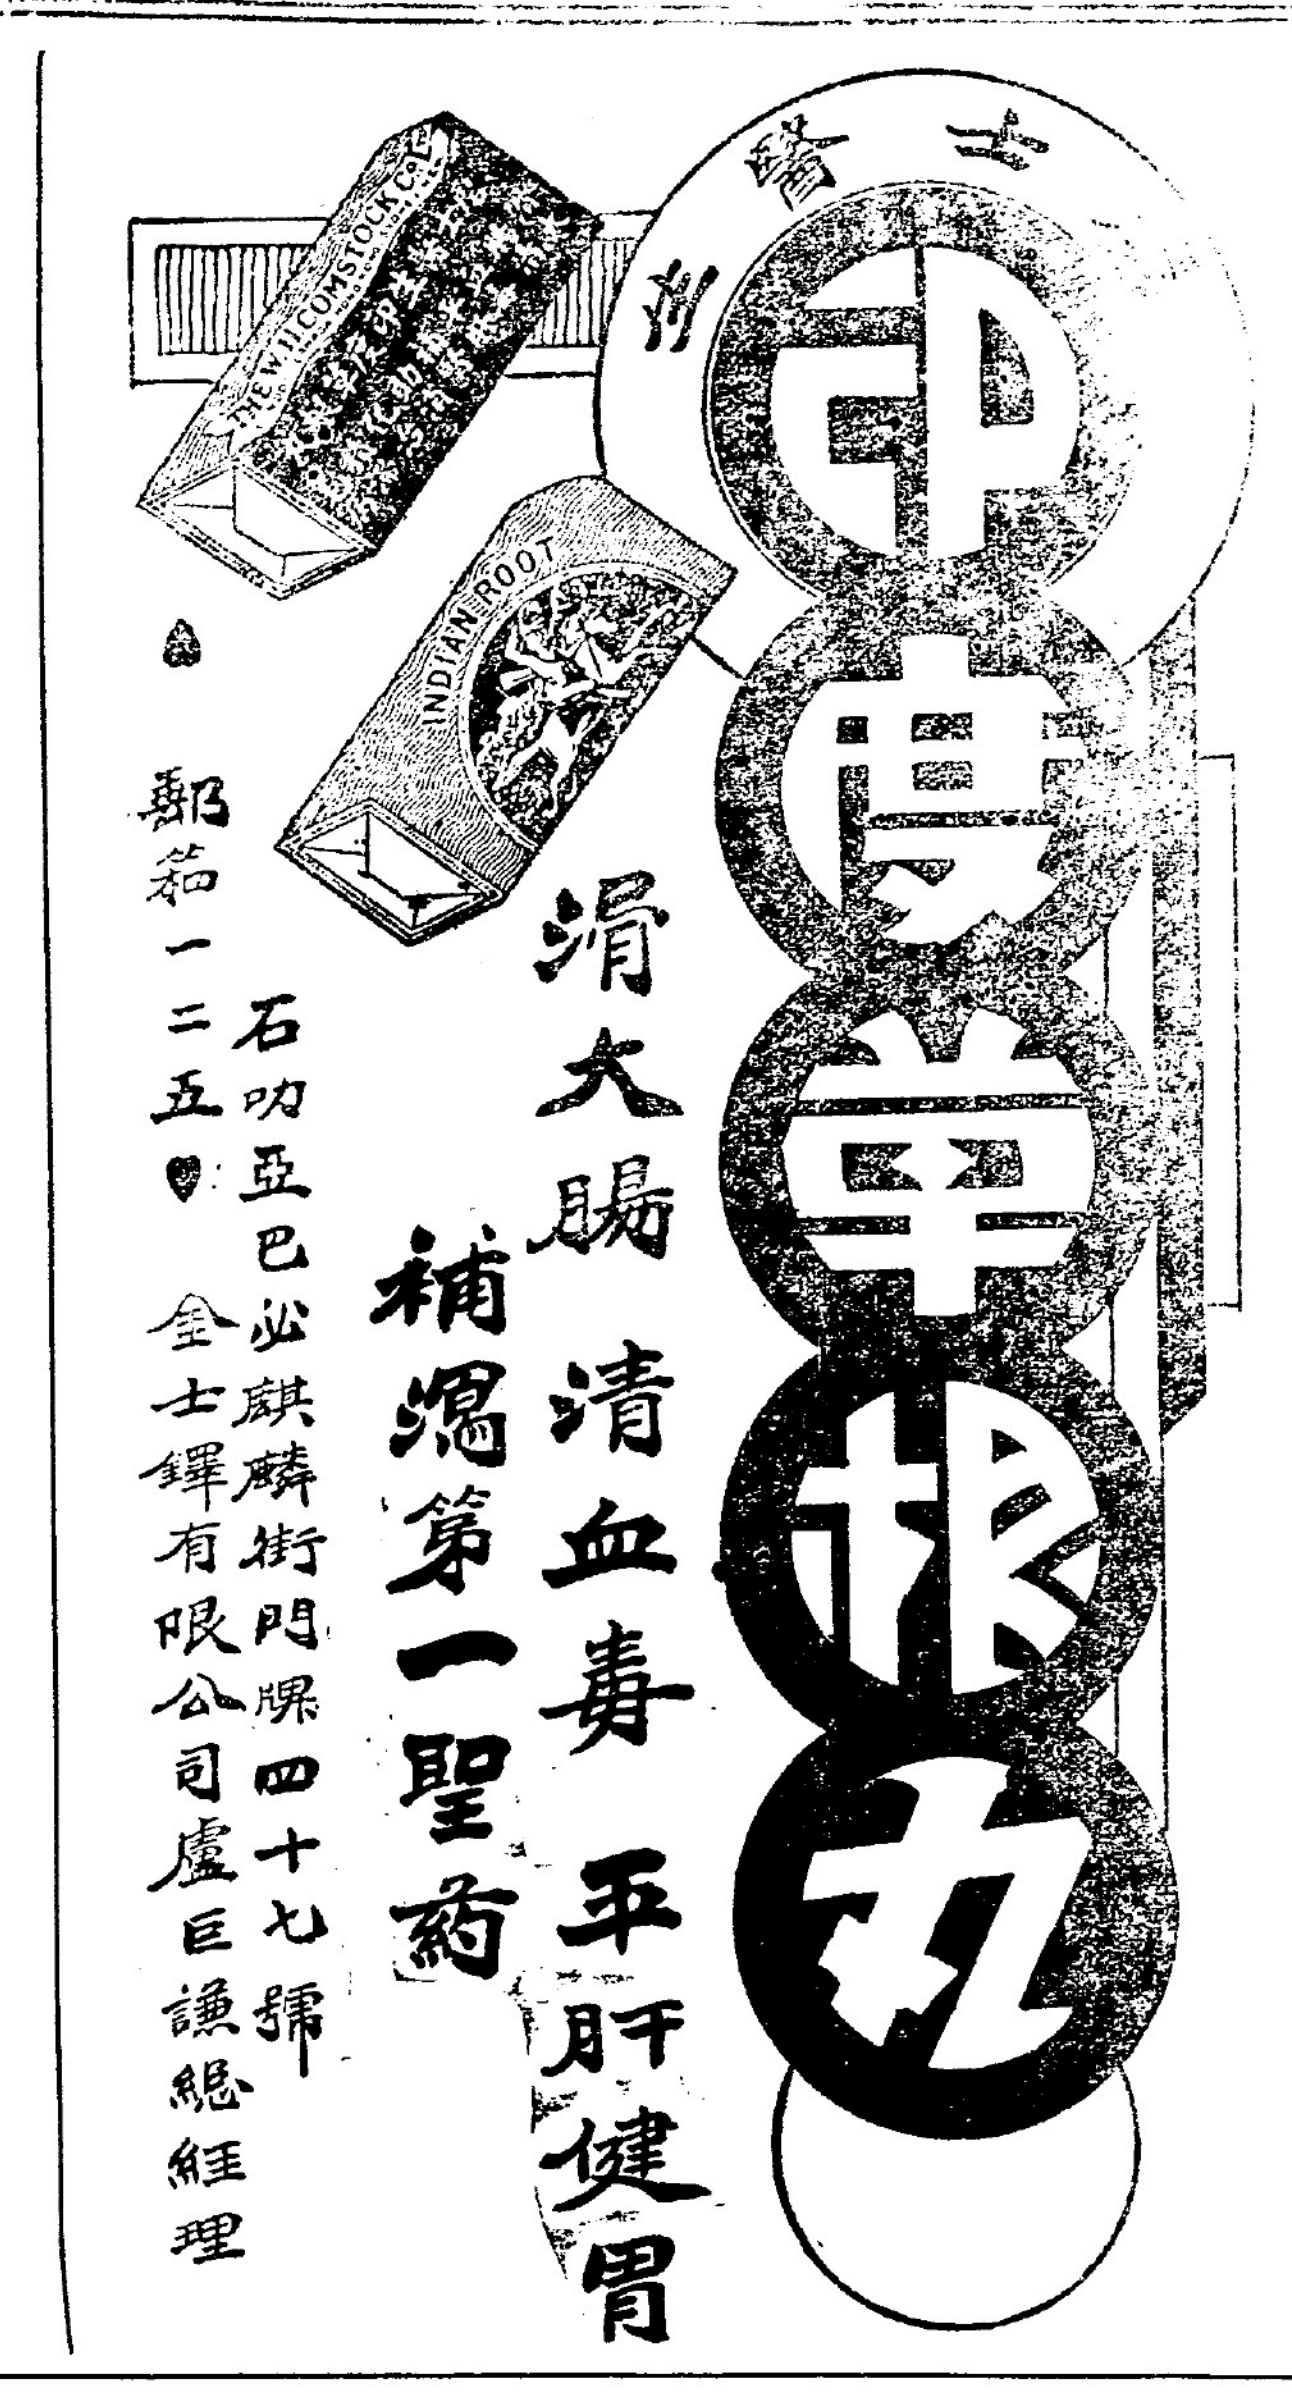 士醫生
印度草根丸
滑大腸 清血毒 平肝健胃
補瀉第一聖药
石叻亞巴必麒麟街門牌四十七號
郵箱一二五 金士鐸有限公司盧巨謙總經理
THE W.H. COMSTOCK Co. L
INDIAN ROOT